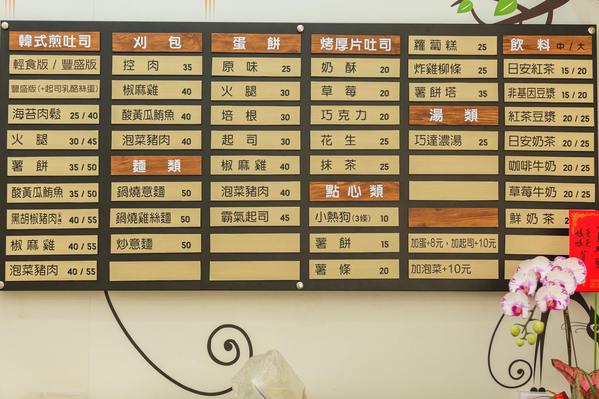 韓式煎吐司
輕食版 / 豐盛版
豐盛版(+起司乳酪絲蛋)
海苔肉鬆 25 / 40
火腿 30 / 45
薯餅 35 / 50
酸黃瓜鮪魚 35 / 50
黑胡椒豬肉 40 / 55
椒麻雞 40 / 55
泡菜豬肉 40 / 55
刈包
控肉 35
椒麻雞 40
酸黃瓜鮪魚 40
泡菜豬肉 40
麵類
鍋燒意麵 50
鍋燒雞絲麵 50
炒意麵 50
蛋餅
原味 25
火腿 30
培根 30
起司 30
椒麻雞 40
泡菜豬肉 40
霸氣起司 45
烤厚片吐司
奶酥 20
草莓 20
巧克力 20
花生 25
抹茶 25
點心類
小熱狗(3條) 10
薯餅 15
薯條 20
蘿蔔糕 25
炸雞柳條 25
薯餅塔 35
湯類
巧達濃湯 25
加蛋+8元，加起司+10元
加泡菜+10元
飲料 中 / 大
日安紅茶 15 / 20
非基因豆漿 15 / 20
紅茶豆漿 20 / 25
日安奶茶 20 / 25
咖啡牛奶 20 / 25
草莓牛奶 20 / 25
鮮奶茶